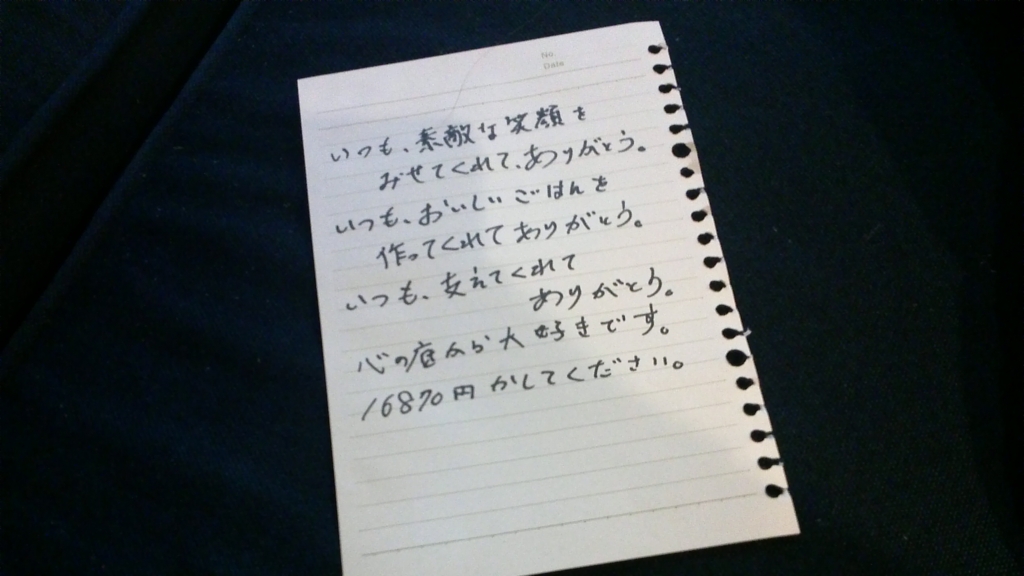 No.
Date
いつも、素敵な笑顔を
みせてくれて、ありがとう。
いつも、おいしいごはんを
作ってくれてありがとう。
いつも、支えてくれて
ありがとう。
心の底から大好きです。
16870円かしてください。